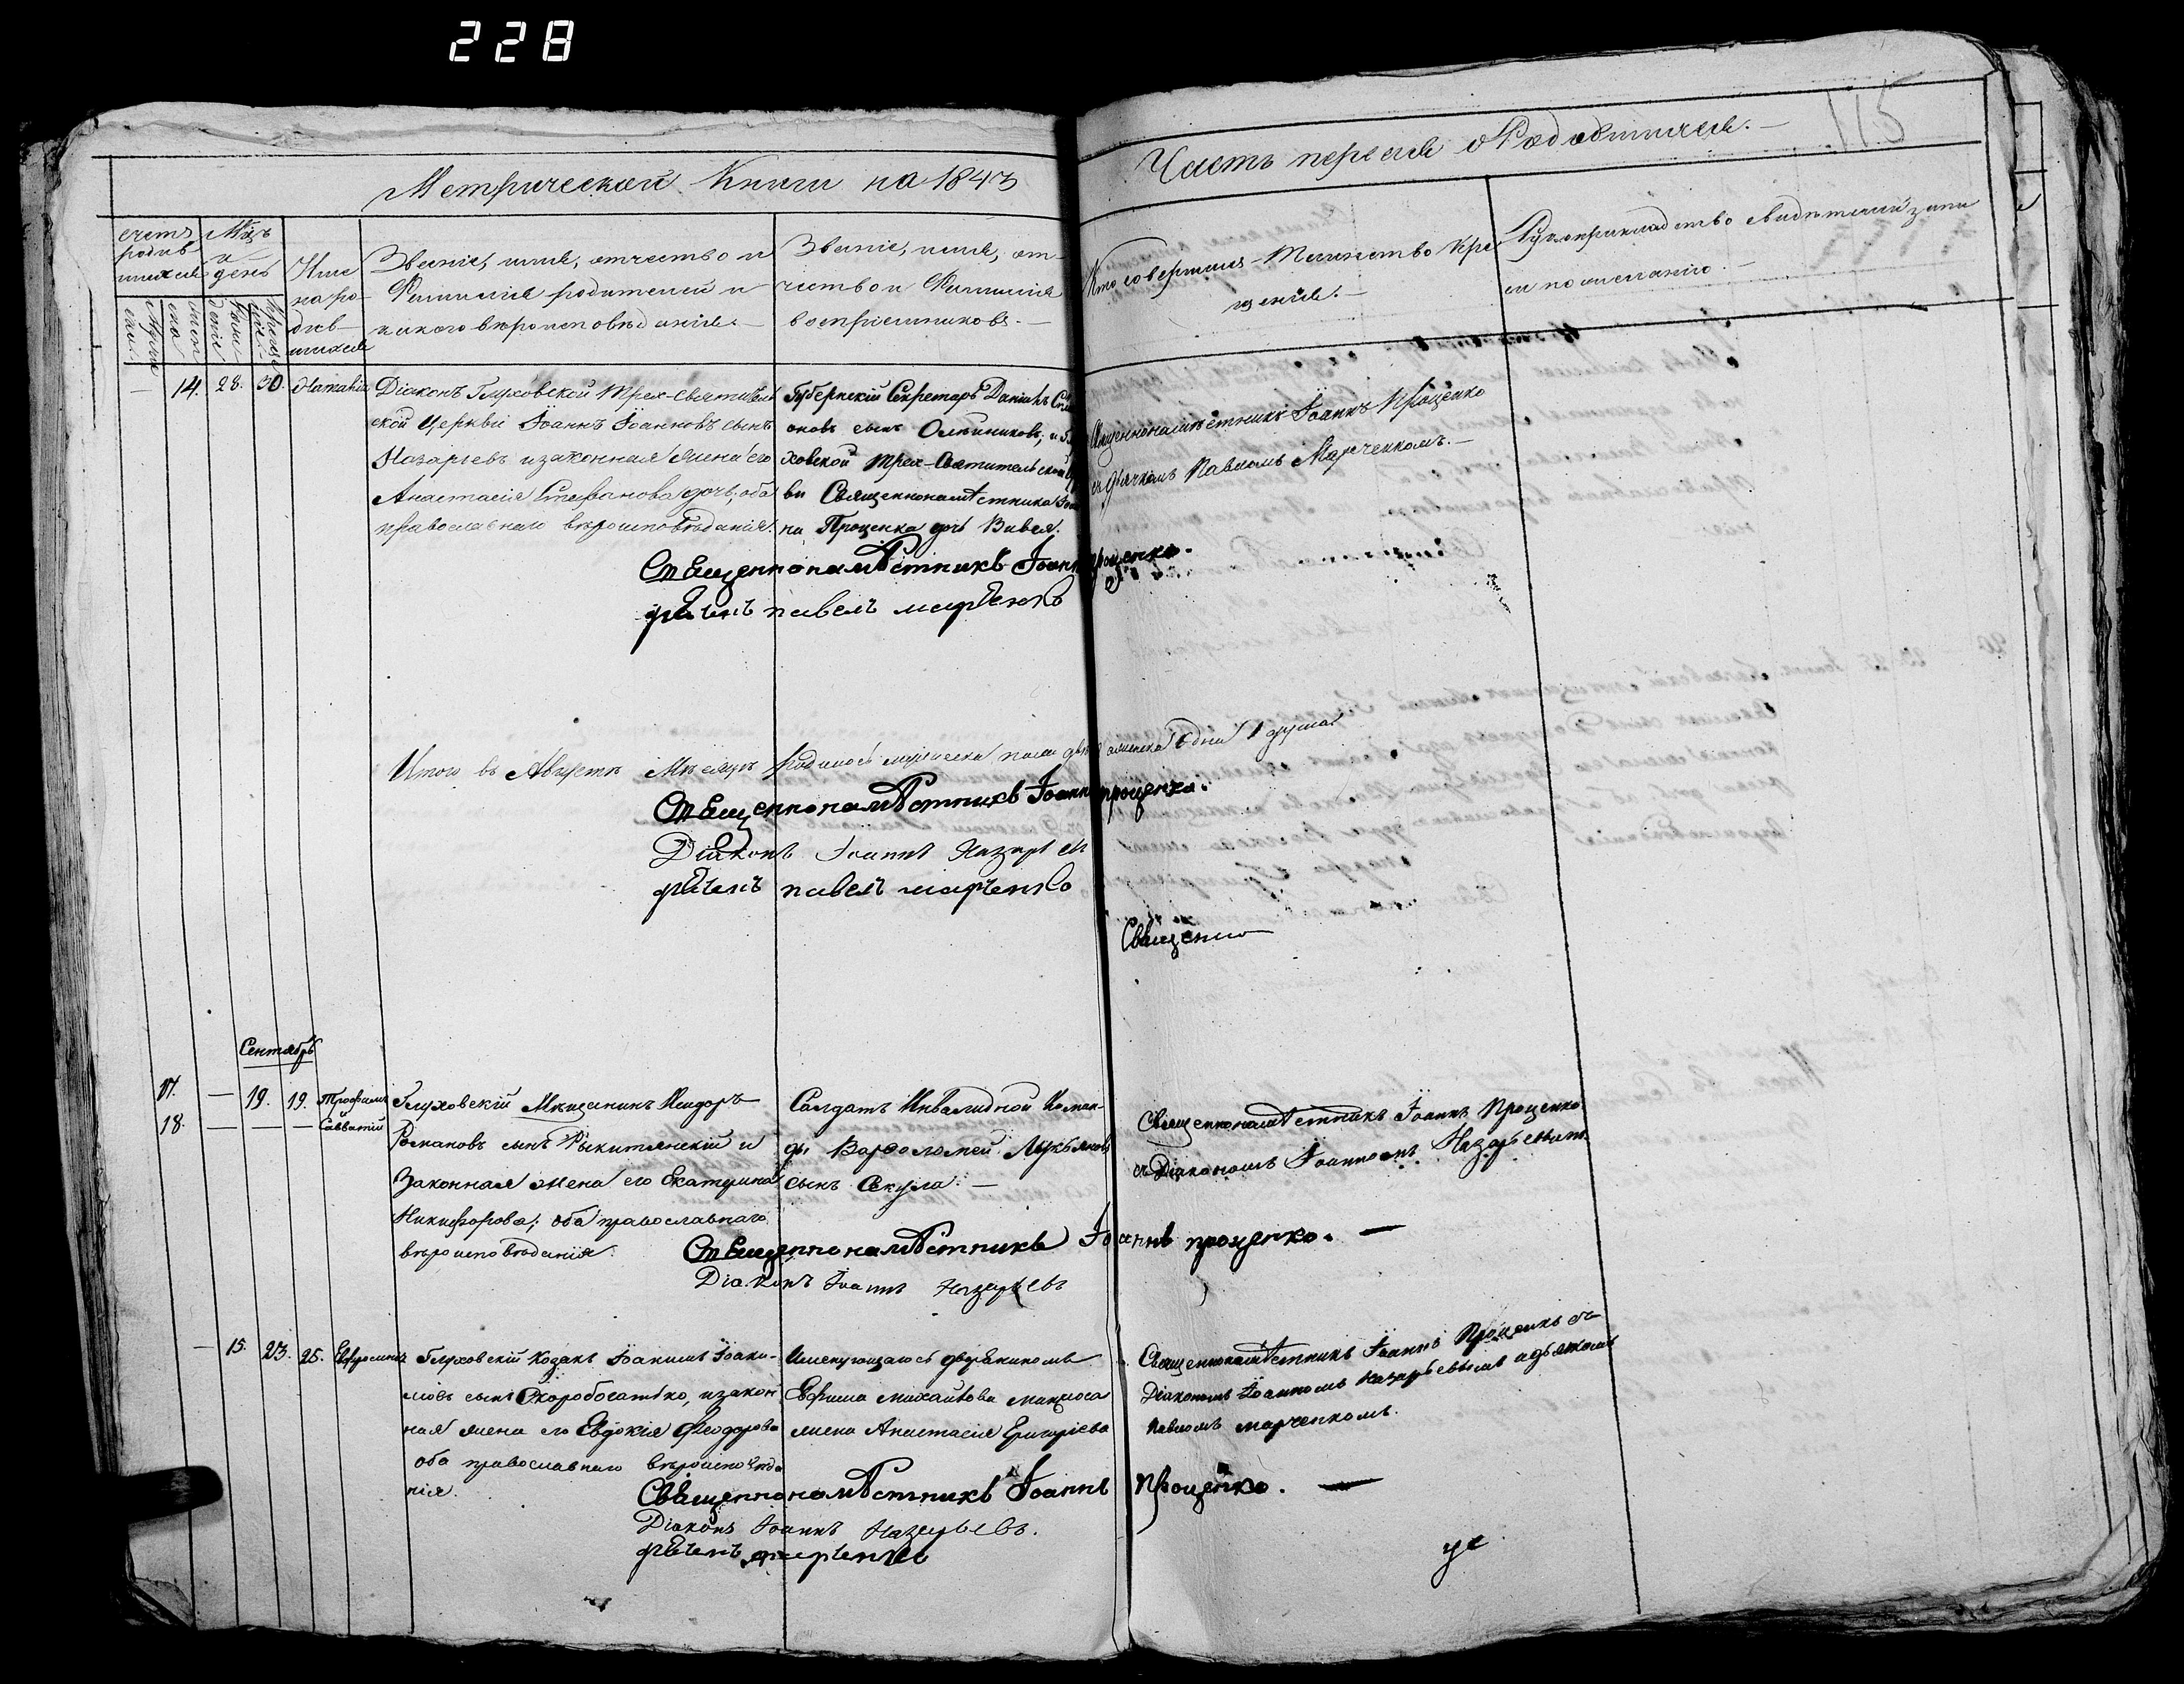 228
115
Метрической Книги на 1843
Часть первая о Родившихся.
счетъ родив шихся
Мцъ и день
Имя на родив шихся
Званіе, имя, отчество и
Фамилія родителей и
какого вѣроисповѣданія.
Званіе, имя, от-
чество и Фамилія
воспріемниковъ.
Кто совершилъ Таинство Кре
щенія.
Рукоприкладство свидѣтелей запи
си по желанію.
— 14. 28. 30.
Діаконъ Глуховской Трех-Святитель
ской Церкви Іоаннъ Іоанновъ сынъ
Назарьевъ и законная жена его
Анастасія Стефанова дочь, оба
православнаго вѣроисповѣданія.
Губернскій Секретарь Даніилъ
оновъ сынъ Олѣйниковъ; и
ховской Трех-Святительской
ви Священнонамѣстника
на Проценка дочь
Священнонамѣстникъ Іоаннъ Проценко
съ дьячкомъ Павломъ Марченкомъ.
Священнонамѣстникъ Іоаннъ Проценко.
дьячекъ павелъ марченко
Итого въ Августѣ Мѣсяцѣ родилось мужеска пола женска одна 1 душа
Священнонамѣстникъ Іоаннъ проценко.
Діаконъ Іоаннъ Назарьев
дьячекъ павелъ марченко
Священно
Сентябрь
17. — 19. 19. Трофимъ
18. — — — Савватій
Глуховскій Мѣщанинъ Исидоръ
Романовъ сынъ Ракитянскій и
Законная жена его Екатерина
Никифорова; оба православнаго
вѣроисповѣданія.
Солдатъ Инвалидной Коман-
ды Варѳоломей Лукьяновъ
сынъ Секула. —
Священнонамѣстникъ Іоаннъ Проценко
съ Діакономъ Іоанномъ Назарьевымъ.
Священнонамѣстникъ Іоаннъ проценко. —
Діаконъ Іоаннъ Назарьевъ
— 15. 23. 25. Евфросинія
Глуховскій Козакъ Іоакимъ Іоаки-
мовъ сынъ Скоробогатько, и закон
ная жена его Евдокія Феодорова
оба православнаго вѣроисповѣда
нія.
Именующагося дворяниномъ
Ефима Михайлова
жена Анастасія Григоріева
Священнонамѣстникъ Іоаннъ Проценко съ
Діакономъ Іоанномъ Назарьевымъ и дьячкомъ
Павломъ марченкомъ.
Священнонамѣстникъ Іоаннъ Проценко. —
Діаконъ Іоаннъ Назарьевъ.
дьячекъ марченко